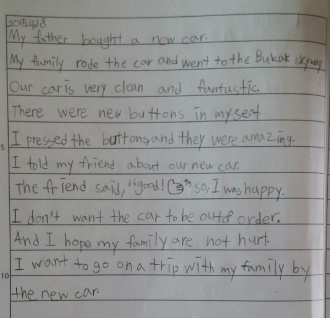 My father bought a new car.
My family rode the car and went to the Bukak skyway
Our car is very clean and fantastic.
There were new buttons in my seat
5 I pressed the buttons, and they were amazing.
I told my friend about our new car.
The friend said, "good!" so, I was happy.
I don't want the car to be out of order.
And I hope my family are not hurt.
10 I want to go on a trip with my family by
the new car.